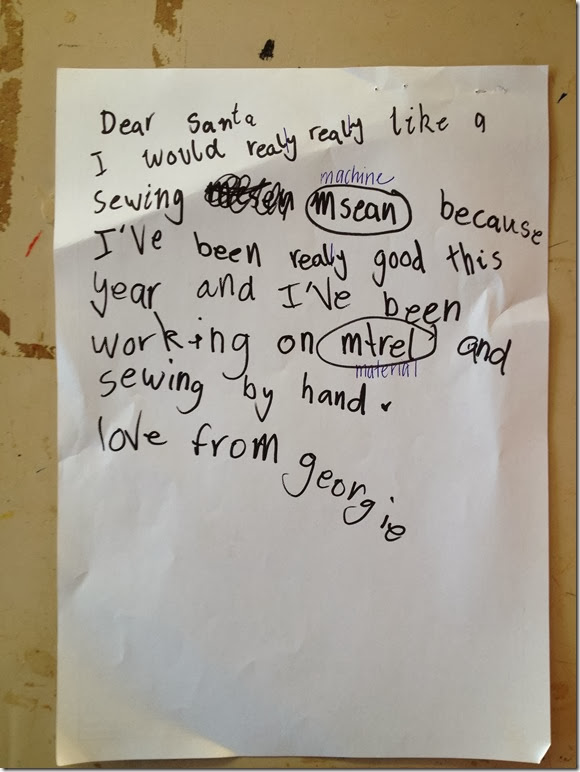 Dear Santa
I would really really like a
machine
sewing msean because
I've been really good this
year and I've been
working on mtrel and
material
sewing by hand.
love from georgie